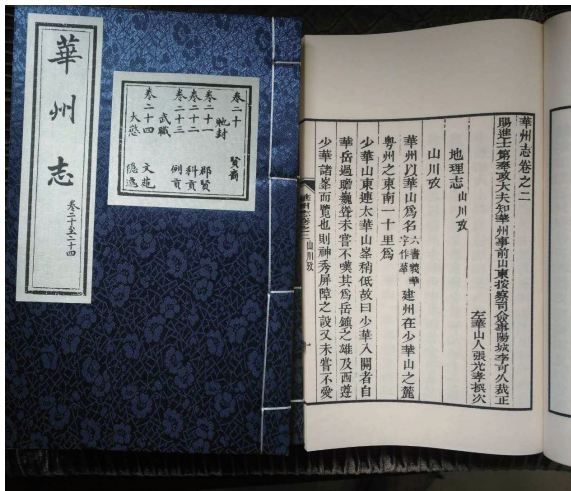 華州志
卷二十至二十四
卷二十
貤封
賢裔
卷二十一
郡賢
卷二十二
科貢
卷二十三
武職
例貢
卷二十四
大憝
文苑
隱逸
華州志卷之二
賜進士第奉政大夫知華州事前山東按察司僉事陽城李可久裁正
左華山人張光孝撰次
地理志 山川攷
山川攷
華州以華山爲名 六書裝華字作崋 建州在少華山之麓
粤州之東南一十里爲
少華山東連太華山峯稍低故曰少華入關者自
華岳過瞻巍聳未嘗不嘆其爲岳鎮之雄及西遵
少華諸峯而覽也則神秀屏障之設又未嘗不愛
華州志卷之二 山川攷